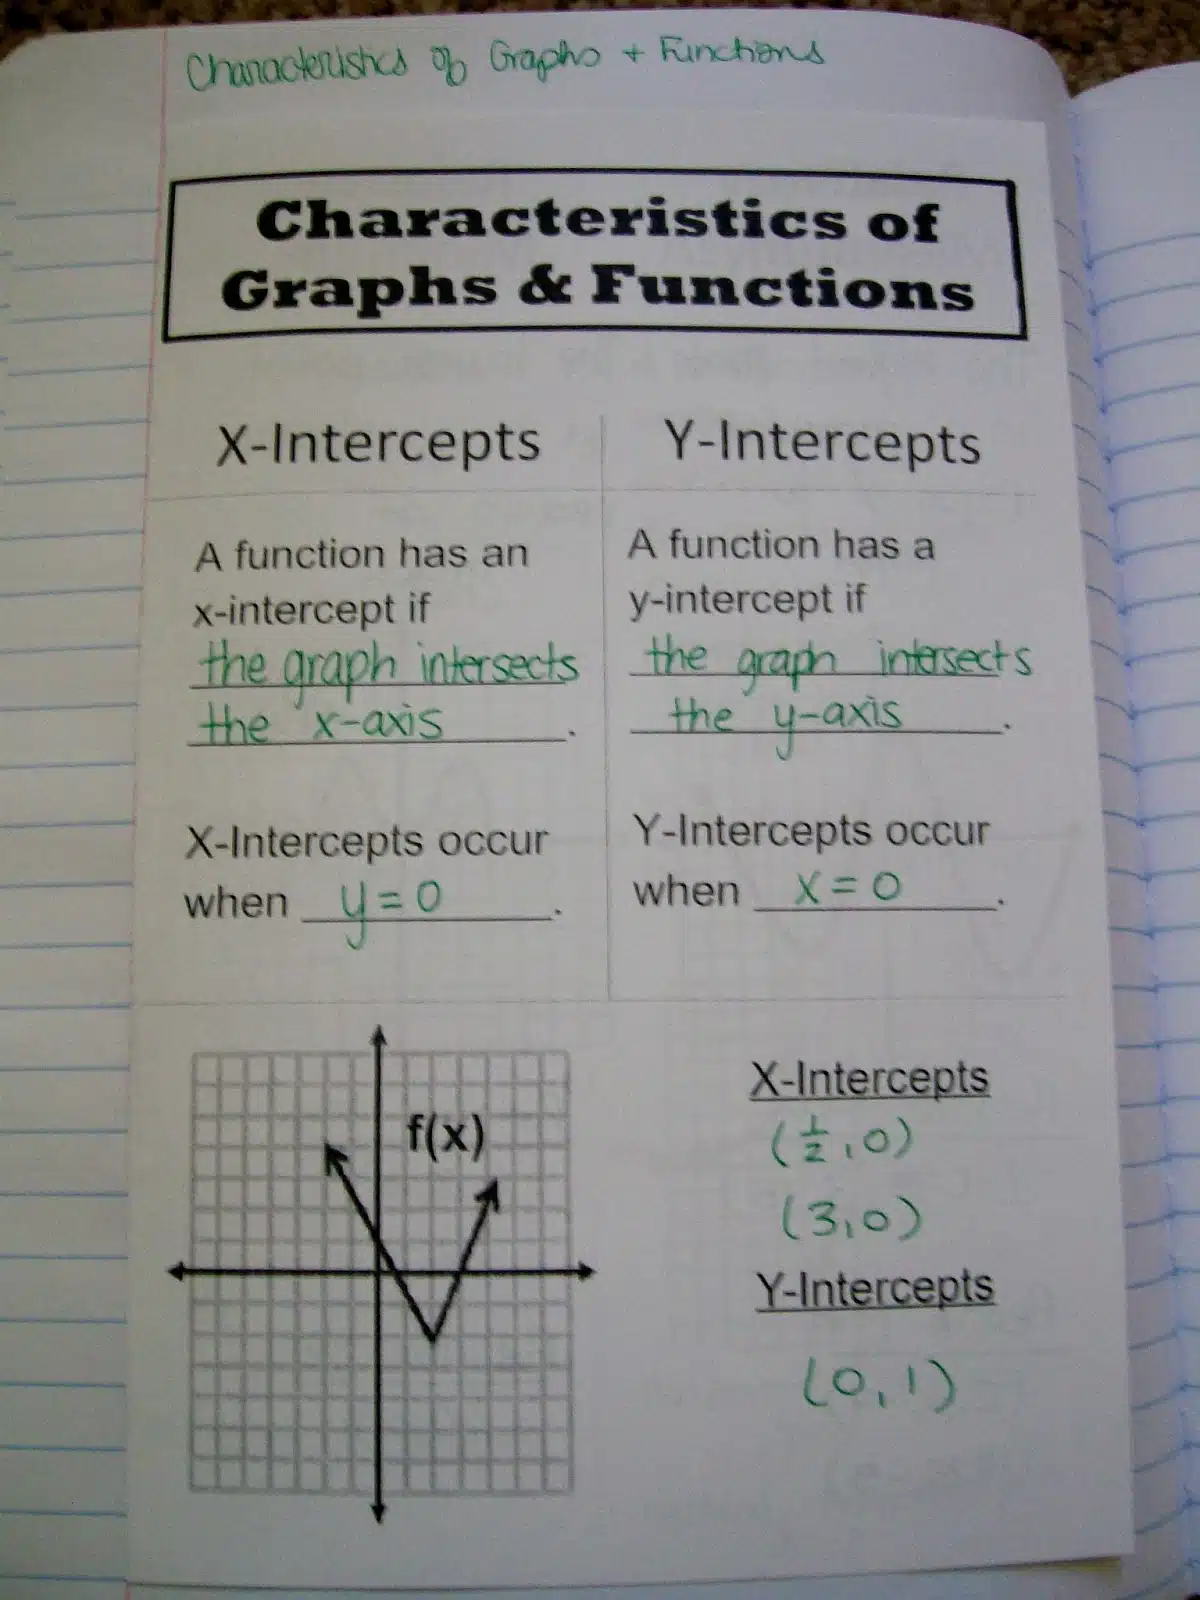 Characteristics of Graphs + Functions
Characteristics of
Graphs & Functions
X-Intercepts
Y-Intercepts
A function has an
x-intercept if
the graph intersects
the x-axis.
A function has a
y-intercept if
the graph intersects
the y-axis.
X-Intercepts occur
when y=0.
Y-Intercepts occur
when x=0.
f(x)
X-Intercepts
(1/2,0)
(3,0)
Y-Intercepts
(0,1)